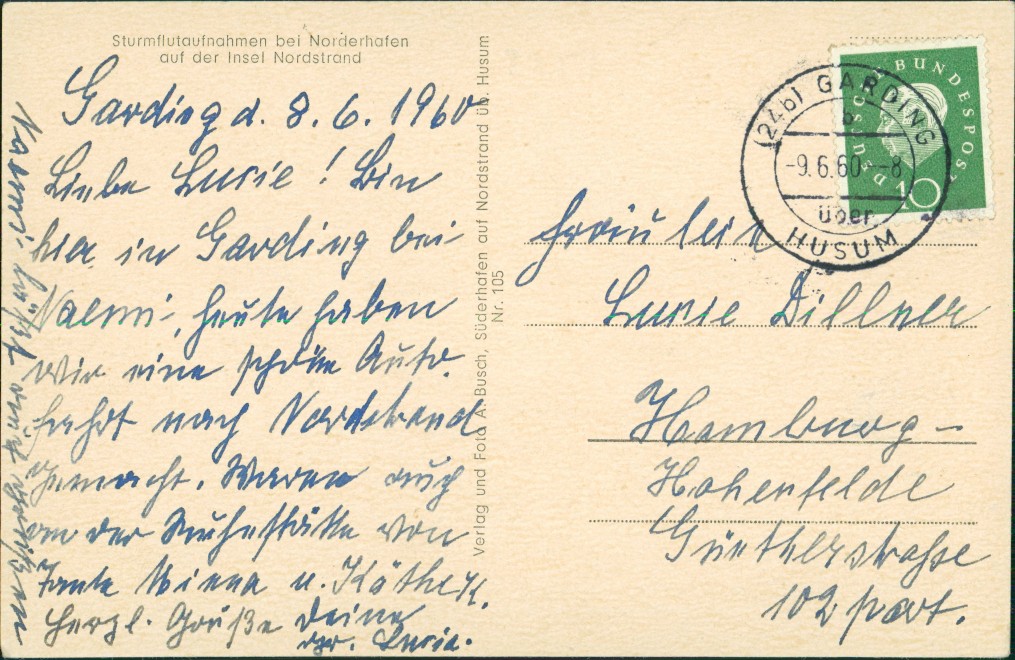 Sturmflutaufnahmen bei Norderhafen
auf der Insel Nordstrand
Garding d. 8. 6. 1960
Liebe Lucie! Bin
hier in Garding bei
Naemi, heute haben
wir eine schöne Auto-
fahrt nach Nordstrand
gemacht. Waren auch
an der Ruhestätte von
Tante Minna u. Käthe K.
Herzl. Grüße Deine
Naemi läßt auch grüßen
Verlag und Foto A. Busch, Süderhafen auf Nordstrand üb. Husum
Nr. 105
DEUTSCHE BUNDESPOST
10
(24b) GARDING
b
-9.6.60--8
über
HUSUM
Fräulein
Lucie Dillner
Hamburg-
Hohenfelde
Güntherstrasse
102 part.